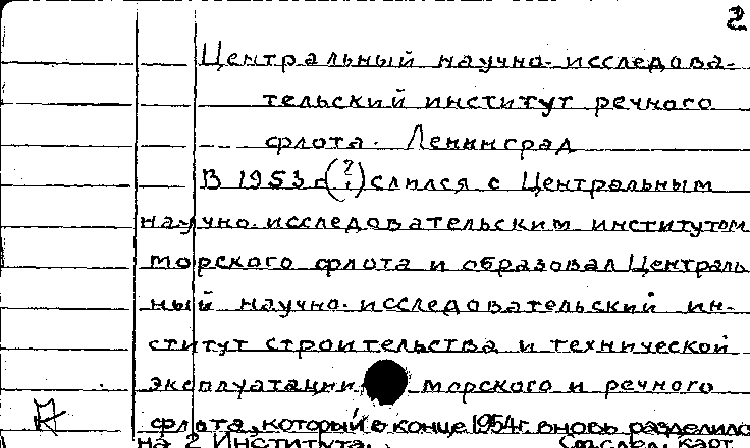 2
Центральный научно-исследова-
тельский институт речного
флота. Ленинград
В 1953 г. (?) слился с Центральным
научно-исследовательским институтом
морского флота и образовал Централь
ный научно-исследовательский ин-
ститут строительства и технической
эксплуатации морского и речного
флота, который в конце 1954г. вновь разделился
на 2 Института. см. след. карт.